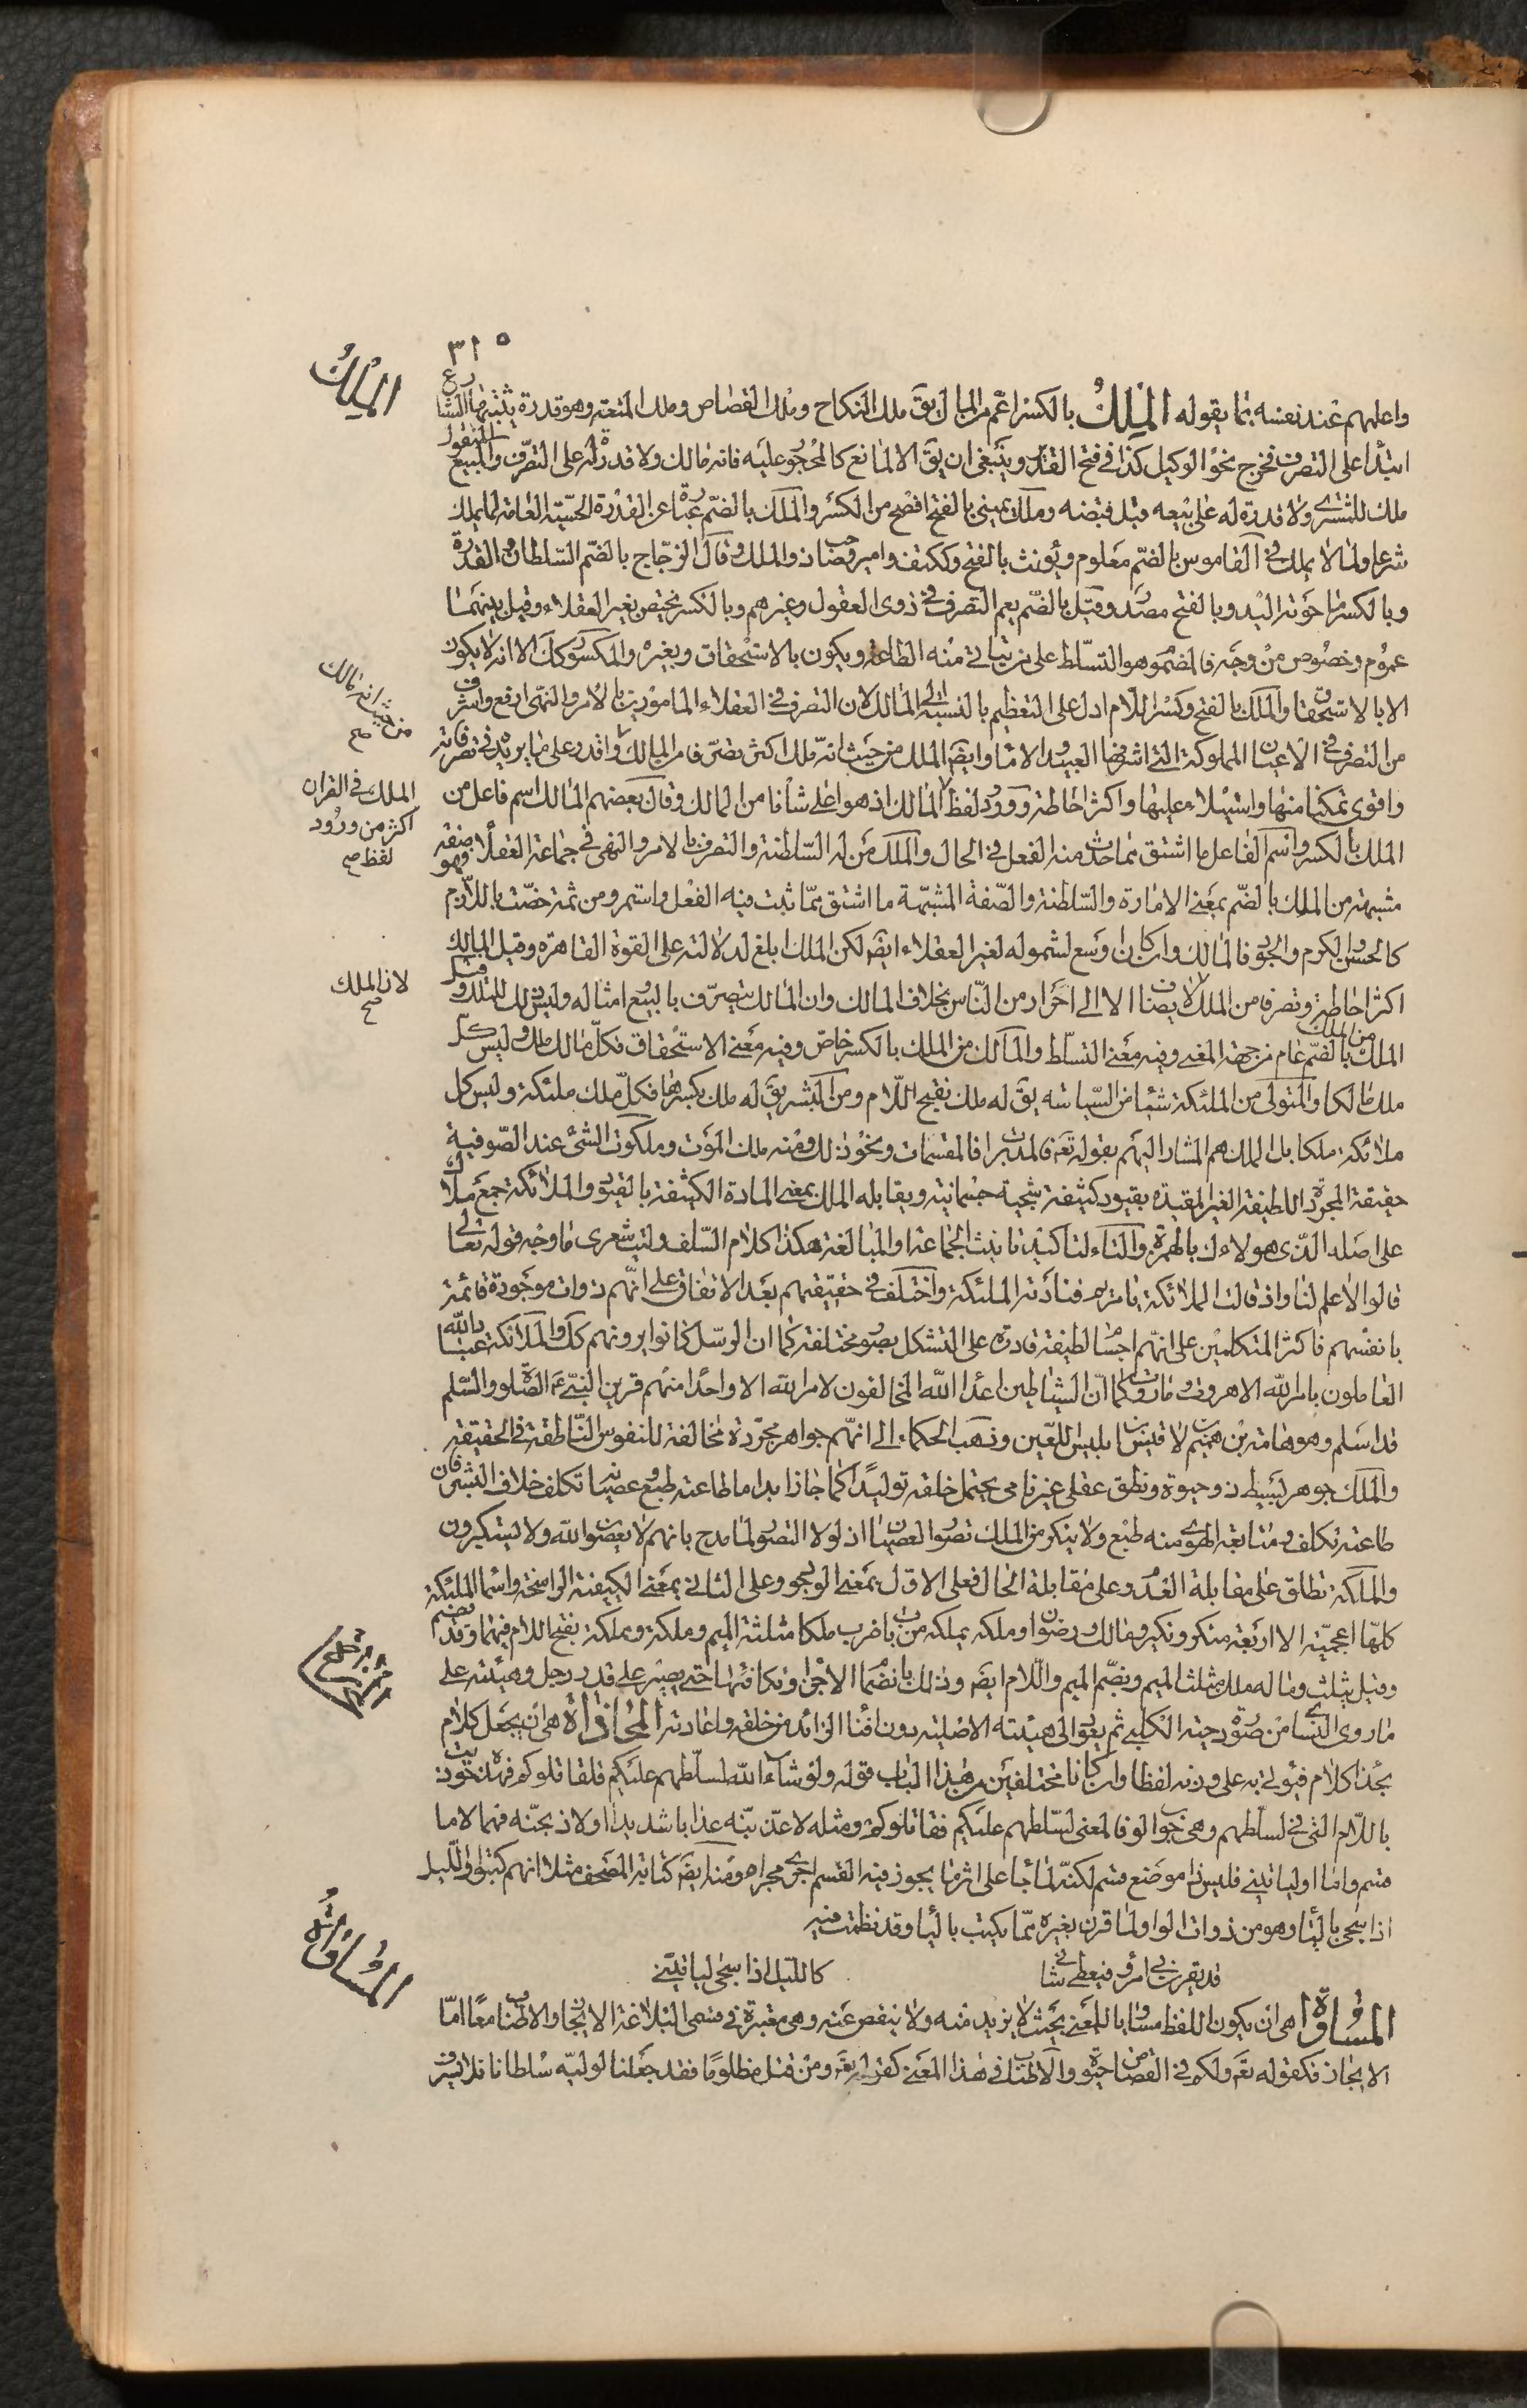 ٣١٥
الملك
واعلمهم عند نفسه بما يقوله الملك بالكسر اعم من المال يق ملك النكاح وملك القصاص وملك المتعة وهو قدرة يثبتها الشارع
ابتداء على التصرف فخرج نحو الوكيل كذا في فتح القدير وينبغي ان يق الا لمانع كالمحجور عليه فانه مالك ولا قدرة له على التصرف والمبيع المنقول
ملك للمشتري ولا قدرة له على بيعه قبل قبضه وملك يميني بالفتح افصح من الكسر والملك بالضم عبارة عن القدرة الحسية العامة لما يملك
شرعا ولما لا يملك في القاموس بالضم معلوم ويؤنث بالفتح وككتف وامير وصاحب ذو الملك وقال الزجاج بالضم السلطان والقدرة
وبالكسر ما حوته اليد وبالفتح مصدر وقيل بالضم يعم التصرف في ذوي العقول وغيرهم وبالكسر يختص بغير العقلاء وقيل بينهما
عموم وخصوص من وجه فالمضموم هو التسلط على من يتاتى منه الطاعة ويكون بالاستحقاق وبغيره والمكسور كك الا انه لا يكون
الا بالاستحقاق والملك بالفتح وكسر اللام ادل على التعظيم بالنسبة الى المالك لان التصرف في العقلاء المامورين بالامر والنهي ارفع واشرف
من التصرف في الاعيان المملوكة التي اشرفها العبيد والاماء وايضا الملك من حيث انه ملك اكثر تصرفا من المالك واقدر على ما يريد في تصرفاته
من حيث انه مالك صح
واقوى تمكنا منها واستيلاء عليها واكثر احاطة وورود لفظ المالك اذ هو اعلى شأنا من المالك وقال بعضهم المالك اسم فاعل من
الملك في القران اكثر من ورود لفظ صح
الملك بالكسر واسم الفاعل ما اشتق مما حدث منه الفعل في الحال والملك من له السلطنة والتصرف بالامر والنهي في جماعة العقلاء وهو صفة
مشبهة من الملك بالضم بمعنى الامارة والسلطنة والصفة المشبهة ما اشتق مما ثبت فيه الفعل واستمر ومن ثمة خصت باللازم
كالحسن والكرم والجود فالمالك وان كان اوسع لشموله لغير العقلاء ايضا لكن الملك ابلغ لدلالته على القوة القاهرة وقيل المالك
اكثر احاطة وتصرفا من الملك لا يضاف الا الى احرار من الناس بخلاف المالك وان المالك يتصرف بالبيع وامثاله وليس ذلك للملك وقيل
لان الملك صح
الملك من الملك بالضم عام من جهة المعنى وفيه معنى التسلط والمالك من الملك بالكسر خاص وفيه معنى الاستحقاق فكل مالك ملك وليس كل
ملك مالكا والمتولي من الملئكة شيئا من السياسة يق له ملك بفتح اللام ومن البشر يق له ملك بكسرها فكل ملك ملئكة وليس كل
ملائكة ملكا بل الملك هم المشار اليهم بقوله تع فالمدبرات فالمقسمات ونحو ذلك ومنه ملك الموت وملكوت الشئ عند الصوفية
حقيقة المجردة اللطيفة الغير المقيدة بقيود كثيفة شجية جسمانية ويقابله الملك بمعنى المادة الكثيفة بالقيود والملائكة جمع ملأك
على اصله الذي هو لاءك بالهمزة والتاء لتاكيد تانيث الجماعة او المبالغة هكذا كلام السلف وليت شعري ما وجه قوله تعالى
قالوا لا علم لنا واذ قالت الملائكة يا مريم فنادته الملئكة واختلف في حقيقتهم بعد الاتفاق على انهم ذوات موجودة قائمة
بانفسهم فاكثر المتكلمين على انهم اجسام لطيفة قادرة على التشكل بصور مختلفة كما ان الرسل كانوا يرونهم كك والملائكة عباد الله
العاملون بامر الله الا هروت وماروت كما ان الشياطين اعداء الله المخالفون لامر الله الا واحدا منهم قرين النبي ع الصلوة والسلم
قد اسلم وهو هامة بن هيم لاقيس بن ابليس اللعين وذهب الحكماء الى انهم جواهر مجردة مخالفة للنفوس الناطقة في الحقيقة
والملك جوهر بسيط ذو حيوة ونطق عقلي غير نامي يحتمل خلقه توليدا كما جاز ابداعا طاعته طبع وعصيانه تكلف خلاف البشر فان
طاعته تكلف ومتابعة الهوى منه طبع ولا ينكر من الملك تصور العصيان اذ لولا التصور لما مدح بانهم لا يعصون الله ولا يستكبرون
والملكة تطلق على مقابلة العدم وعلى مقابلة الحال فعلى الاول بمعنى الوجود وعلى الثاني بمعنى الكيفية الراسخة واسماء الملئكة
كلها اعجمية الا اربعة منكر ونكير ومالك ورضوان وملكه يملكه من باب ضرب ملكا مثلثة الميم وملكة ومملكة بفتح اللام فيهما وقد يضم
وقيل يثلث وما له ملك مثلث الميم وبضم الميم واللام ايضا وذلك بانضمام الاجزاء وتكاثفها حتى يصير على قدر رجل وهيئته على
ما روى النسائي من صورة دحية الكلبي ثم يعود الى هيئته الاصلية بدون افناء الزائد من خلقه واعادته المحاذاة هي ان يجعل كلام
بحذاء كلام فيؤتى به على وزنه لفظا وان كانا مختلفين من هذا الباب قوله ولو شاء الله لسلطهم عليكم فلقاتلوكم فهذه حوذيت
باللام التي في لسلطهم وهي جواب لو فالمعنى لسلطهم عليكم فقاتلوكم ومثله لاعذبنه عذابا شديدا او لاذبحنه فهما لاما
قسم واما اوليا تيني فليس ذا موضع قسم لكنه لما جاء على اثر ما يجوز فيه القسم اجرى مجراه ومنه ايضا كتابة المصحف مثلا انهم كتبوا والليل
اذا سجى بالياء وهو من ذوات الواو لما قرن بغيره مما يكتب بالياء وقد نظمت فيه
قد يقرن بي امرؤ فيعطى شاني كالليل اذا سجى ليا تيني
المساواة
المساواة هي ان يكون اللفظ مساويا للمعنى بحيث لا يزيد منه ولا ينقص عنه وهي معتبرة في قسمي البلاغة الايجاز والاطناب معا اما
الايجاز فكقوله تع ولكم في القصاص حيوة والاطناب في هذا المعنى كقوله تع ومن قتل مظلوما فقد جعلنا لوليه سلطانا فلا يسرف